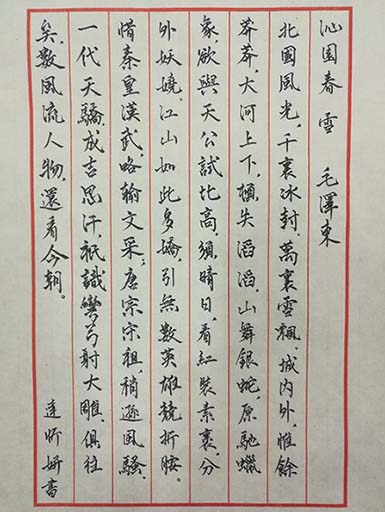 沁园春 雪 毛澤東
北國風光，千裏冰封，萬裏雪飄。城内外，惟餘
莽莽，大河上下，頓失滔滔。山舞銀蛇，原馳蠟
象，欲與天公試比高。須晴日，看紅裝素裹，分
外妖嬈。江山如此多嬌，引無数英雄競折腰。
惜秦皇漢武，略輸文采；唐宗宗祖，稍遜風騷。
一代天驕，成吉思汗，祇識彎弓射大雕。俱往
矣，数風流人物，還看今朝。
昕妍書